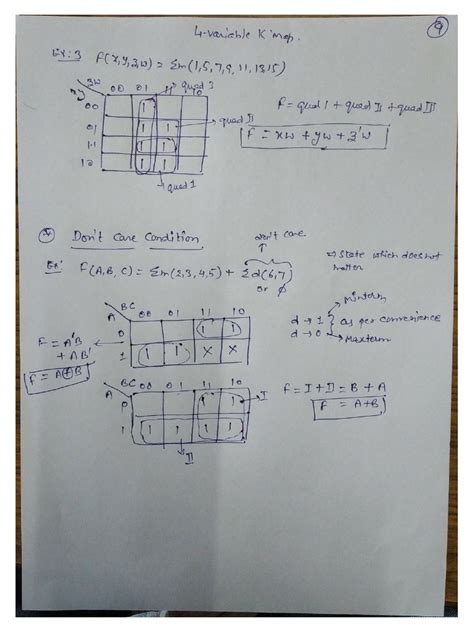 9
4-variable K map.
Ex: 3 F(x,y,z,w) = Σm(1,5,7,9,11,13,15)
zw 00 01 11 10 quad 3
xy
00 1
01 1 1 quad II
11 1 1
10 1 1
quad 1
F = quad I + quad II + quad III
F = xw + yw + z'w
* Don't Care Condition.
don't care
Ex: F(A, B, C) = Σm(2,3,4,5) + Σd(6,7)
or ϕ
State which does not
matter
minterm
d → 1
d → 0
as per convenience
Maxterm
BC 00 01 11 10
A
0 1 1
1 1 1 X X
F = A'B
+ AB'
F = A⊕B
BC 00 01 11 10
A
0 1 1 I
1 1 1 1 1
II
F = I + II = B + A
F = A+B